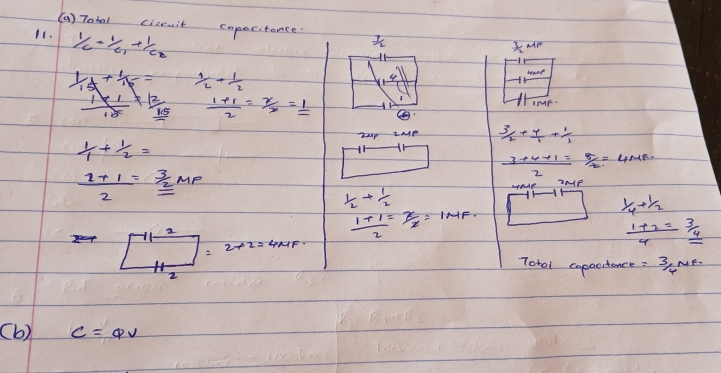 (a) Total circuit capacitance.
11. 1/C = 1/C1 + 1/C2
1/15 + 1/15 =
1+1/15 = 2/15
1/2 + 1/2
1+1/2 = 2/2 = 1
1/1 + 1/2 =
2+1/2 = 3/2 MF
2
2
= 2+2=4MF.
3/2
4
1
2MF 2MF
1/2 + 1/2
1+1/2 = 2/2 = 1MF.
3/2 MF
4MF
1MF.
3/2 + 4/1 + 1/1
3+4+1/2 = 8/2 = 4MF.
4MF 2MF
1/4 + 1/2
1+2/4 = 3/4
Total capacitance = 3/4 MF.
(b) C = QV